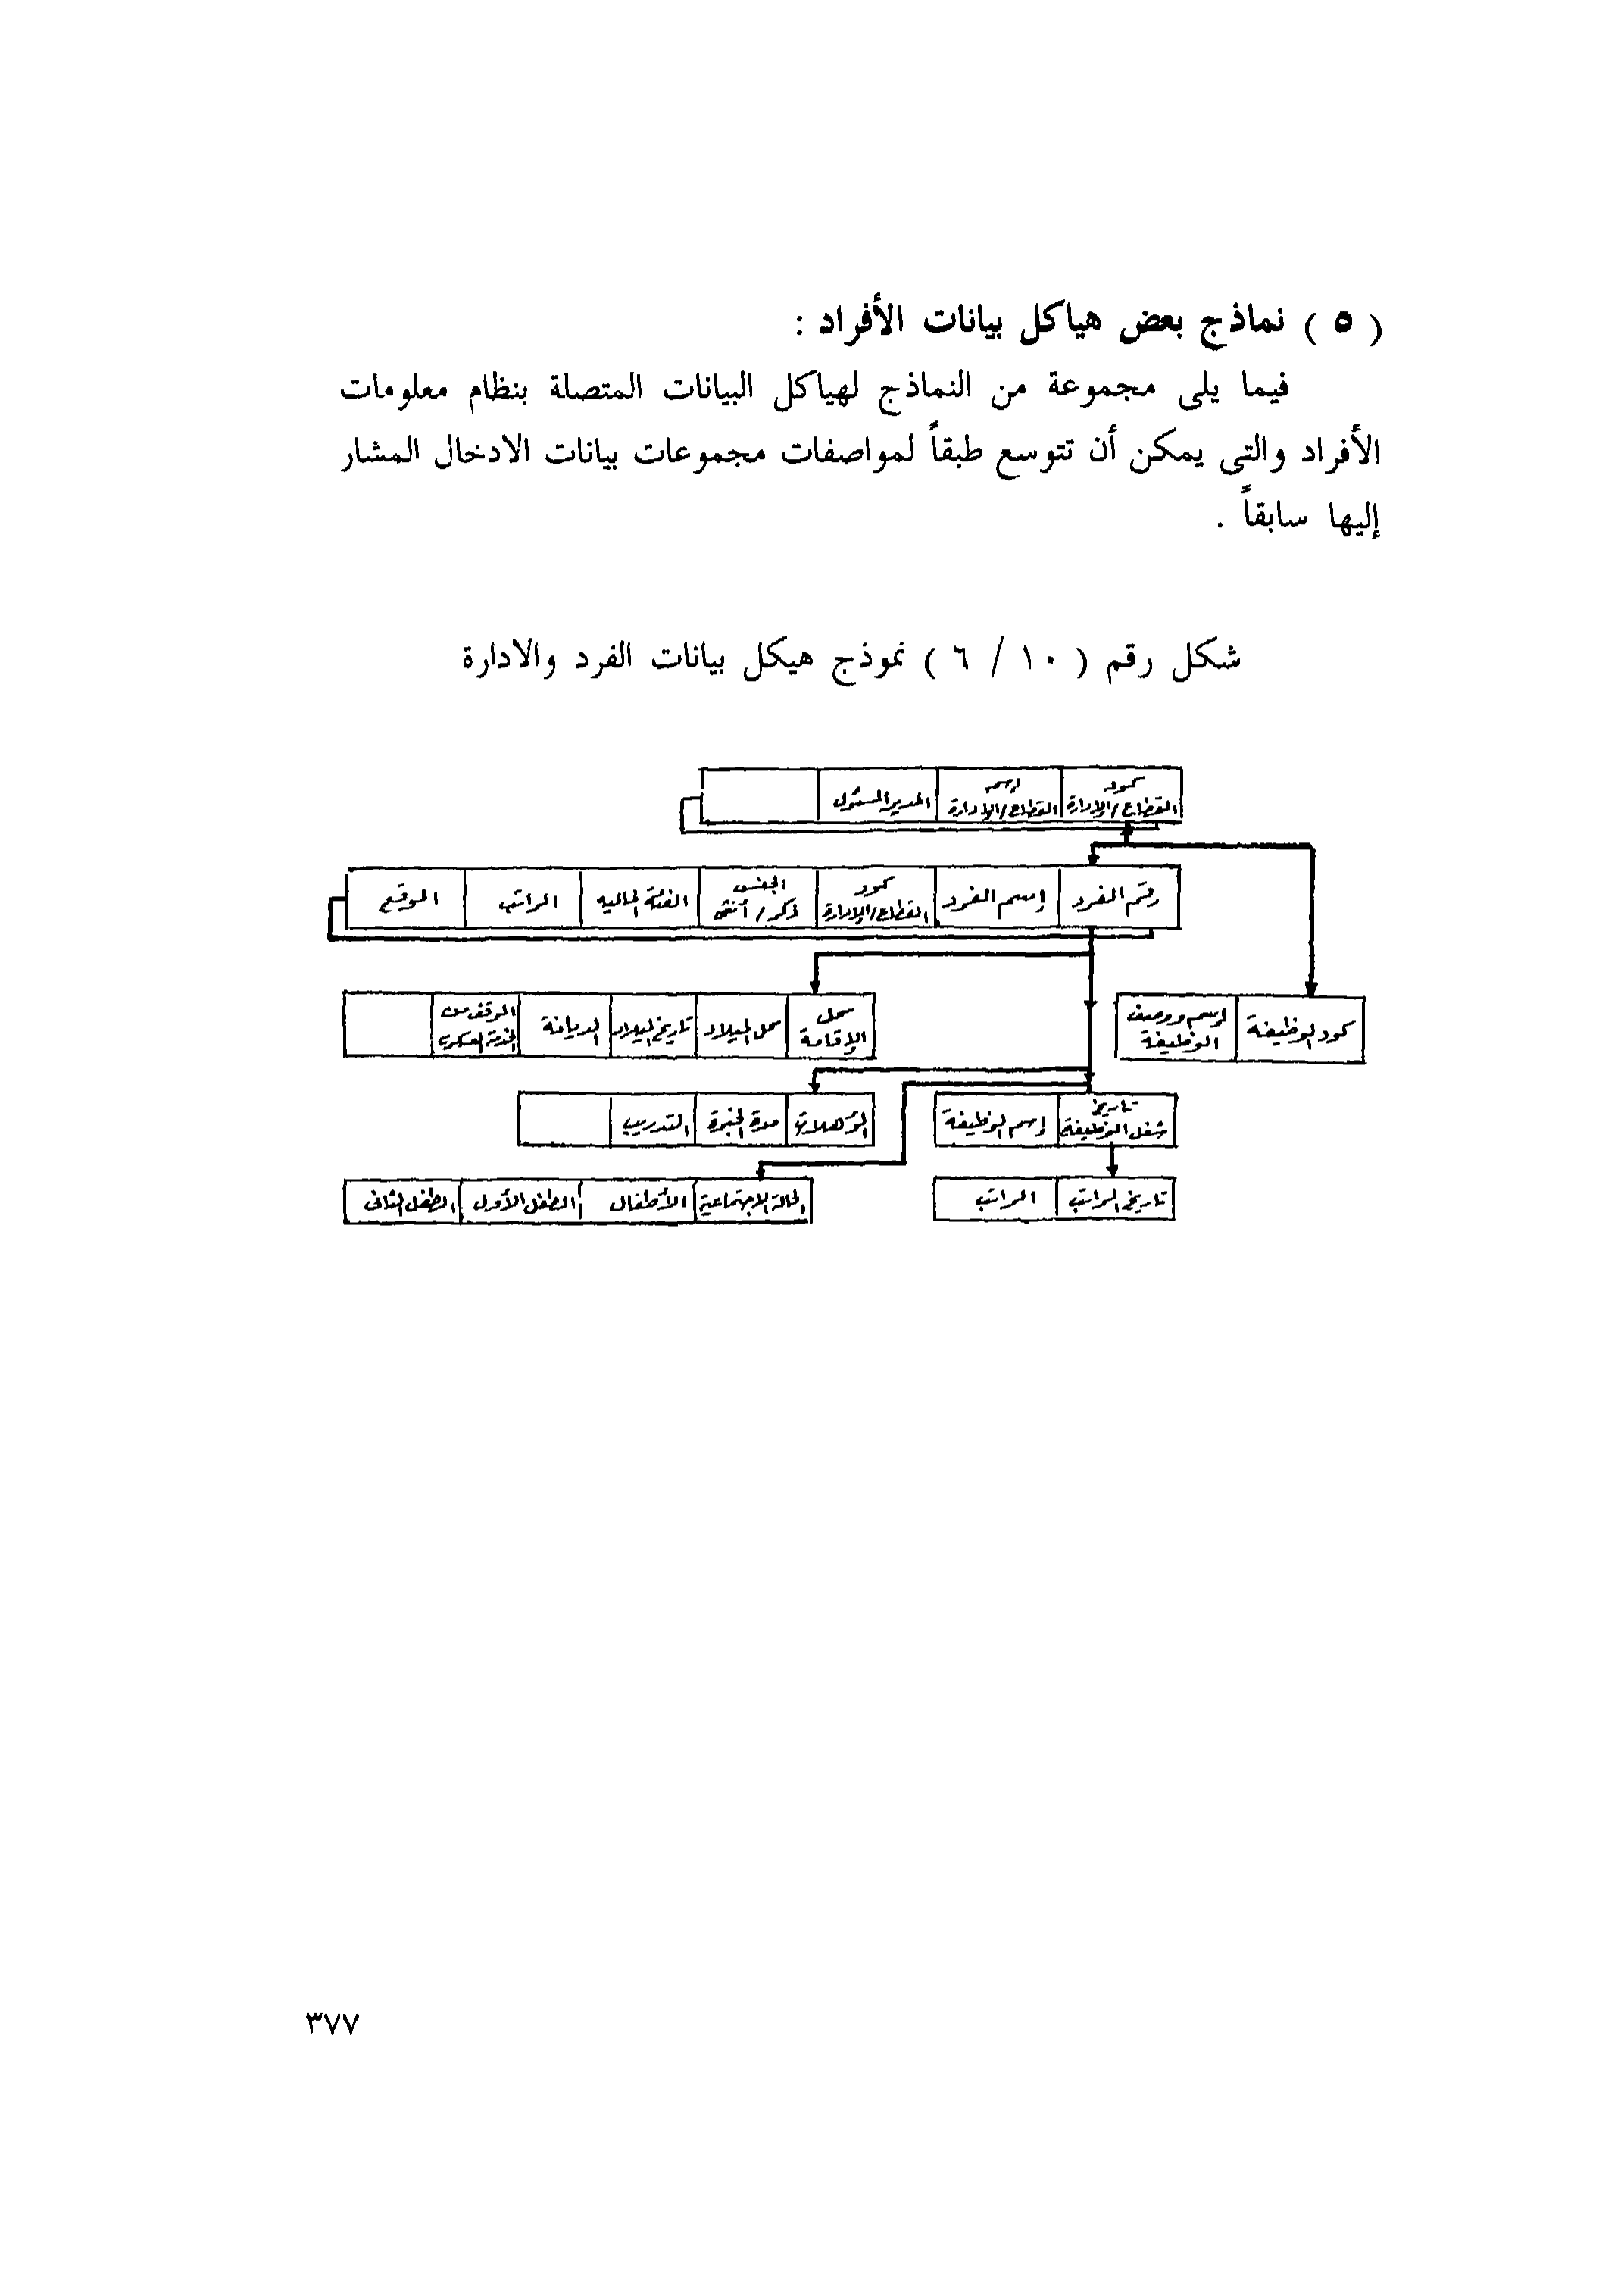 ( ٥ ) نماذج بعض هياكل بيانات الأفراد :
فيما يلى مجموعة من النماذج لهياكل البيانات المتصلة بنظام معلومات
الأفراد والتى يمكن أن تتوسع طبقاً لمواصفات مجموعات بيانات الادخال المشار
إليها سابقاً .
شكل رقم ( ١٠ / ٦ ) نموذج هيكل بيانات الفرد والادارة
كود
القطاع/الإدارة
إسم
القطاع/الإدارة
المدير المسئول
رقم الفرد
إسم الفرد
كود
القطاع/الإدارة
الجنس
ذكر/أنثى
الفئة المالية
الراتب
الموقع
كود الوظيفة
إسم ووصف
الوظيفة
محل
الإقامة
محل الميلاد
تاريخ الميلاد
الديانة
الموقف من
الخدمة العسكرية
تاريخ
شغل الوظيفة
إسم الوظيفة
المؤهلات
مدة الخبرة
التدريب
تاريخ الراتب
الراتب
الحالة الإجتماعية
الأطفال
الطفل الأول
الطفل الثانى
٣٧٧